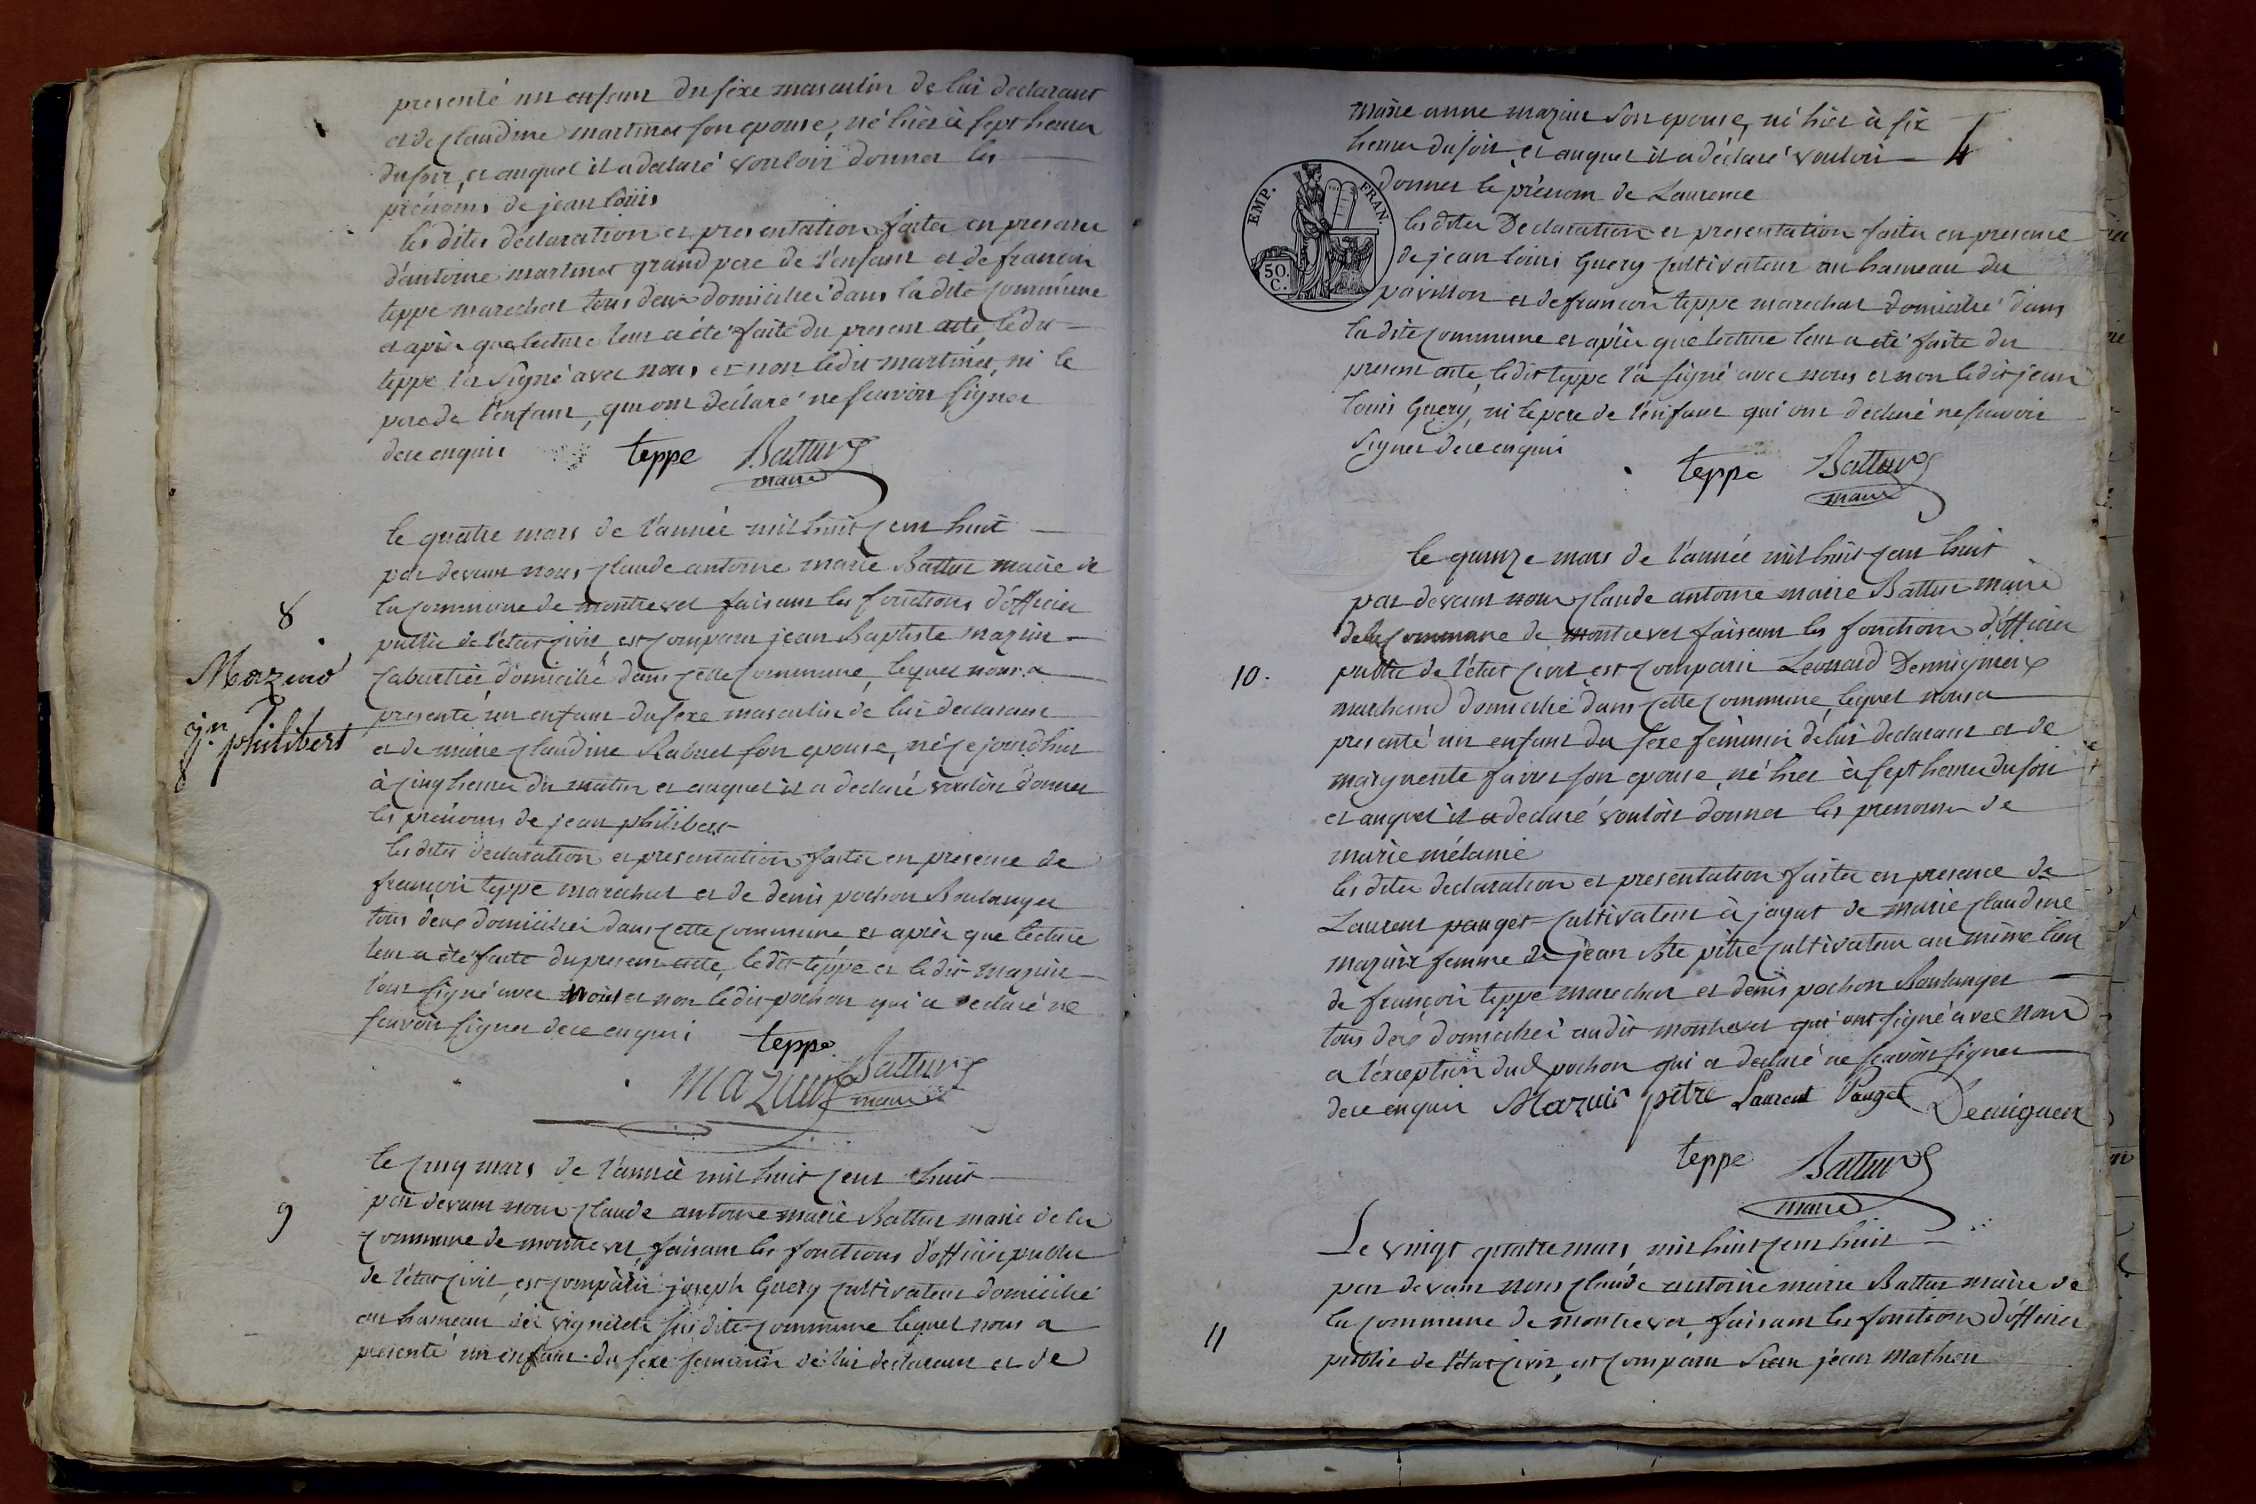 presenté un enfant du sexe masculin de lui declarant
et de claudine martinet son epouse, né hier à sept heures
du soir, et auquel il a declaré vouloir donner les
prénoms de jean louis
les dites déclaration et presentation faites en presence
d'antoine martinet grand pere de l'enfant et de francois
teppe marechal tous deux domiciliés dans la dite commune
et après que lecture leur a été faite du present acte, ledit
teppe l'a signé avec nous et non ledit martinet, ni le
pere de l'enfant, qui ont declaré ne scavoir signer
de ce enquis teppe Battur
maire
le quatre mars de l'année mil huit cent huit
par devant nous claude antoine marie Battur maire de
8
la commune de montrevel faisant les fonctions d'officier
public de l'état civil, est comparu jean Baptiste mazuir
cabartier domicilié dans cette commune, lequel nous a
jn philibert
presenté un enfant du sexe masculin de lui declarant
et de marie claudine son epouse, né cejourd'hui
à cinq heures du matin et auquel il a declaré vouloir donner
les prénoms de jean philibert
les dites declaration et presentation faites en presence de
françois teppe marechal et de denis pochon Boulanger
tous deux domiciliés dans cette commune et après que lecture
leur a été faite du present acte, ledit teppe et ledit mazuir
l'ont signé avec nous et non ledit pochon qui a declaré ne
scavoir signer de ce enquis
teppe
mazuir Battur
maire
le cinq mars de l'année mil huit cent huit
9
par devant nous claude antoine marie Battur maire de la
commune de montrevel, faisant les fonctions d'officier public
de l'état civil, est comparu joseph Guery cultivateur domicilié
au hameau des susdite commune lequel nous a
presenté un enfant du sexe feminin de lui declarant et de
marie anne mazuir son epouse, né hier à six
4
heures du soir et auquel il a déclaré vouloir
donner le prénom de Laurence
EMP. FRAN.
50.
C.
les dites Declaration et presentation faites en presence
de jean louis Guery cultivateur au hameau du
pavillon et de francois teppe marechal domicilié dans
la dite commune et après que lecture leur a été faite du
present acte, ledit teppe l'a signé avec nous et non ledit jean
louis Guery, ni le pere de l'enfant qui ont declaré ne scavoir
signer de ce enquis
teppe Battur
maire
le quinze mars de l'année mil huit cent huit
par devant nous claude antoine marie Battur maire
de la commune de montrevel faisant les fonctions d'officier
10.
public de l'état civil est comparu Leonard
marchand domicilié dans cette commune, lequel nous a
presenté un enfant du sexe féminin de lui declarant et de
marguerite son epouse, né hier à sept heures du soir
et auquel il a declaré vouloir donner les prenoms de
marie mélanie
les dites declaration et presentation faites en presence de
Laurent pauget cultivateur à jayat de marie claudine
mazuir femme de jean Bte pitre cultivateur au même lieu
de françois teppe marechal et denis pochon Boulanger
tous deux domiciliés audit montrevel qui ont signé avec nous
a l'exception dud pochon qui a declaré ne scavoir signer
de ce enquis Mazuir pitre Laurent Pauget
teppe Battur
maire
Le vingt quatre mars mil huit cent huit
par devant nous claude antoine marie Battur maire de
la commune de montrevel, faisant les fonctions d'officier
11
public de l'état civil, est comparu Sieur jean Mathieu